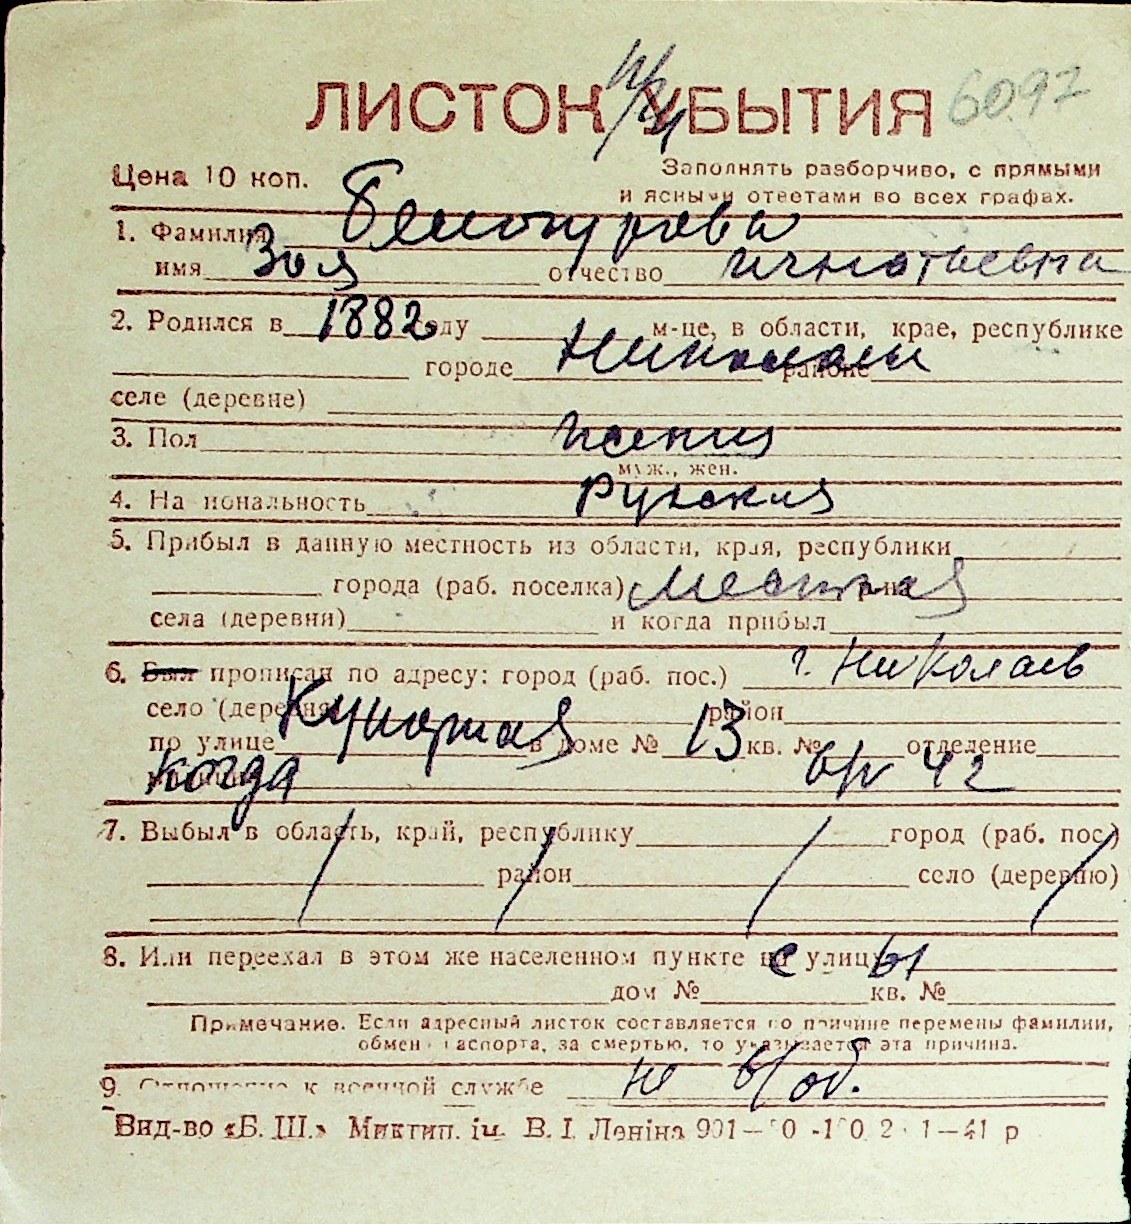 6097
ЛИСТОК УБЫТИЯ
Цена 10 коп.
Заполнять разборчиво, с прямыми
и ясными ответами во всех графах.
1. Фамилия Белокурова
имя Зоя отчество Игнатьевна
2. Родился в 1882 году м-це, в области, крае, республике
городе Николаев районе
селе (деревне)
3. Пол женщ
муж., жен.
4. Национальность Русская
5. Прибыл в данную местность из области, края, республики
города (раб. поселка) местная р-на
села (деревни) и когда прибыл
6. Был прописан по адресу: город (раб. пос.) г. Николаев
село (деревня) район
по улице в доме № 13 кв. № отделение
когда 42
7. Выбыл в область, край, республику город (раб. пос.)
район село (деревню)
8. Или переехал в этом же населенном пункте с улицы
дом № кв. №
Примечание. Если адресный листок составляется по причине перемены фамилии,
обмена паспорта, за смертью, то указывается эта причина.
9. Отношение к военной службе не в/об.
Вид-во «Б. Ш.» Миктип. ім. В. І. Леніна